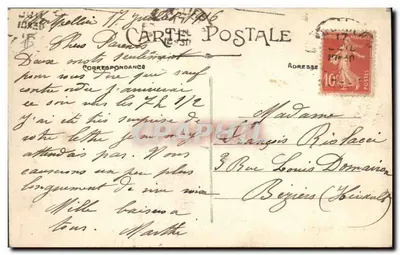 17 juillet 1916
CARTE POSTALE
CORRESPONDANCE
ADRESSE
Chers Parents
Deux mots seulement
pour vous dire que sauf
contre ordre j'arriverai
ce soir vers les 7 h 1/2
j'ai été très surprise de
votre lettre je ne m'y
attendais pas. Nous
causerons un peu plus
longuement de vive voix
Mille baisers à
tous. Marthe
10c
Madame
François
3 Rue Louis Domairon
Béziers (Hérault)